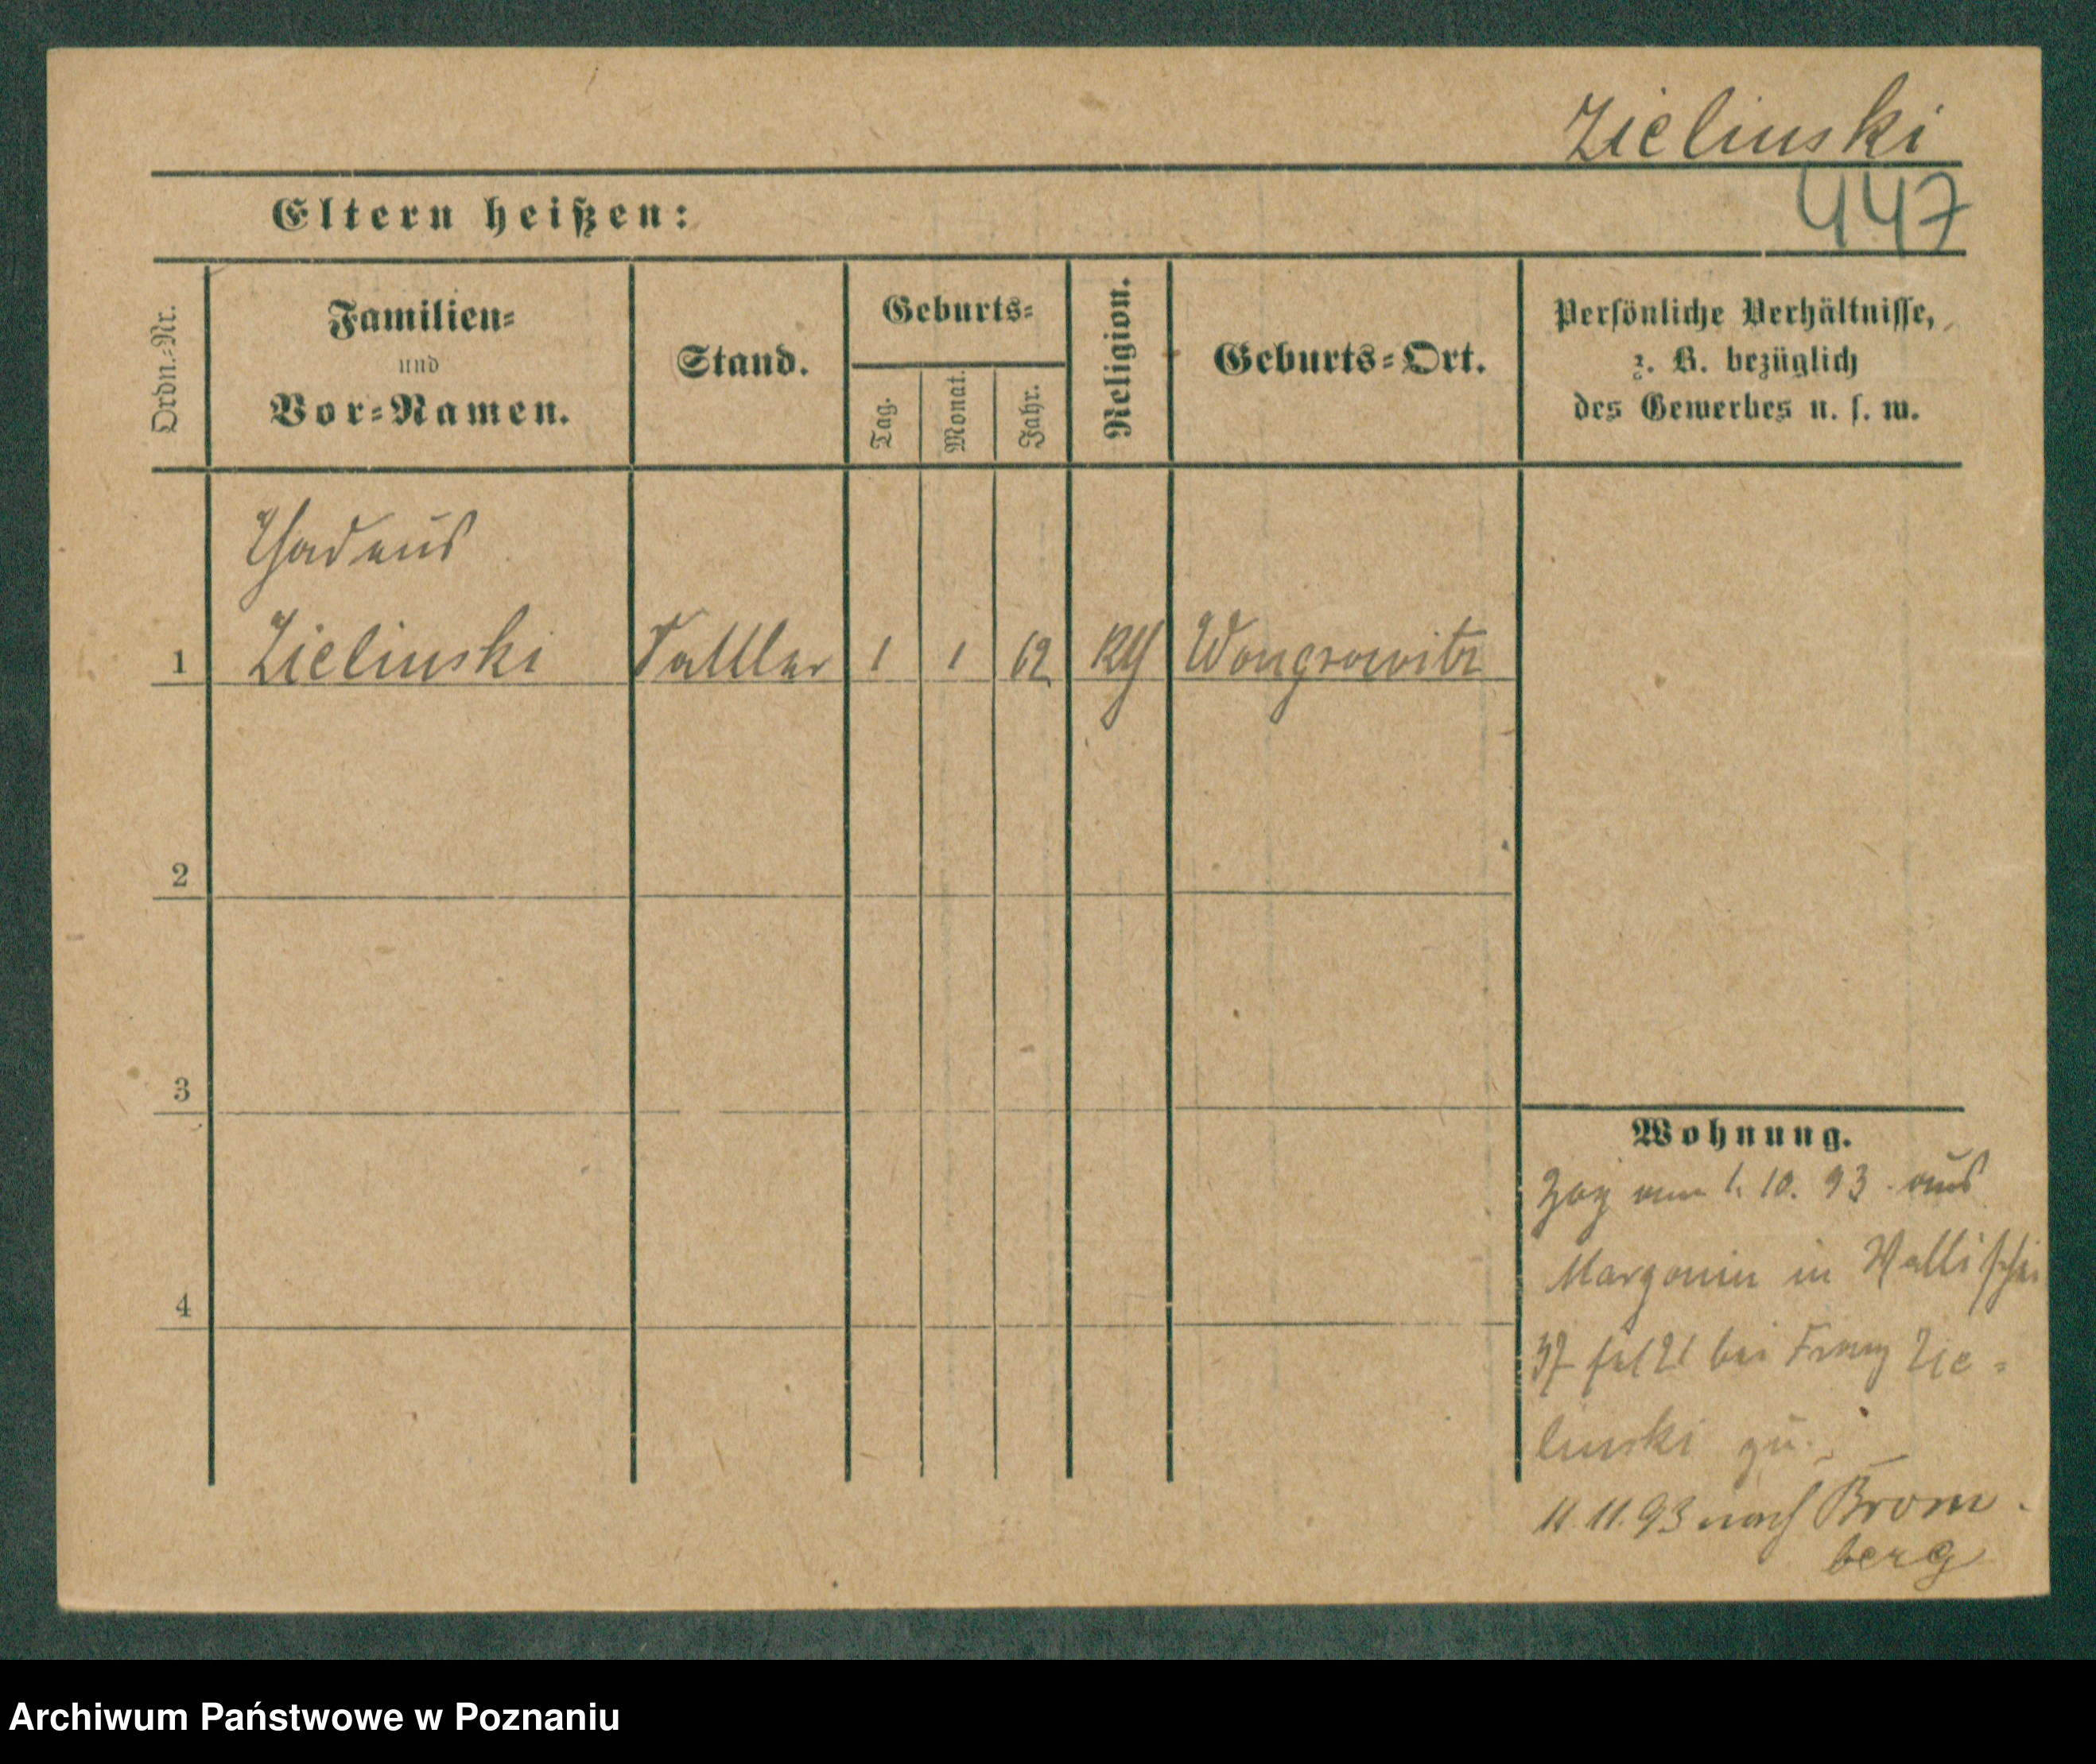 Zielinski
447
Eltern heißen:
Ordn.-Nr.
Familien-
und
Vor-Namen.
Stand.
Geburts-
Tag.
Monat.
Jahr.
Religion.
Geburts-Ort.
Persönliche Verhältnisse,
z. B. bezüglich
des Gewerbes u. s. w.
Thadeus
1 Zielinski Sattler 1 1 62 Wongrowitz
2
3
4
Wohnung.
Zog am 1. 10. 93 aus
Margonin in Wallischei
37 bei Franz Zie-
linski zu.
11. 11. 93 nach Brom-
berg
Archiwum Państwowe w Poznaniu